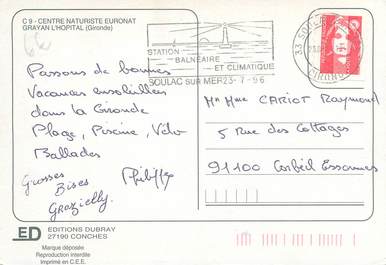 C 9 - CENTRE NATURISTE EURONAT
GRAYAN L'HOPITAL (Gironde)
6€
STATION
BALNEAIRE
ET CLIMATIQUE
SOULAC SUR MER 23-7-96
33 SOULAC
GIRONDE
Passons de bonnes
Vacances ensoleillées
dans la Gironde
Plage, Piscine, Vélo
Ballades
Grosses
Bises
Grazielly
Mr Mme CARIOT Raymond
5 Rue des Cottages
91100 Corbeil Essonnes
ED
EDITIONS DUBRAY
27190 CONCHES
Marque déposée
Reproduction interdite
Imprimé en C.E.E.